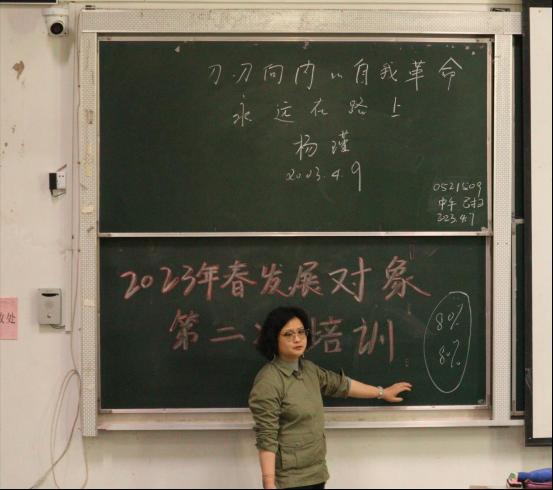 刀刃向内 自我革命
永远在路上
杨瑾
2023.4.9
0521509
中午 已扫
223.4.7
2023年春发展对象
第二 培训
80%
80%
处